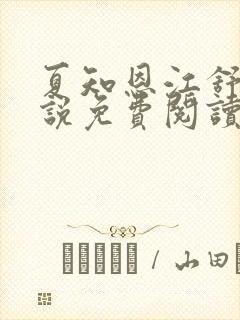 夏知恩江舒
說免費閱讀
/ 山田